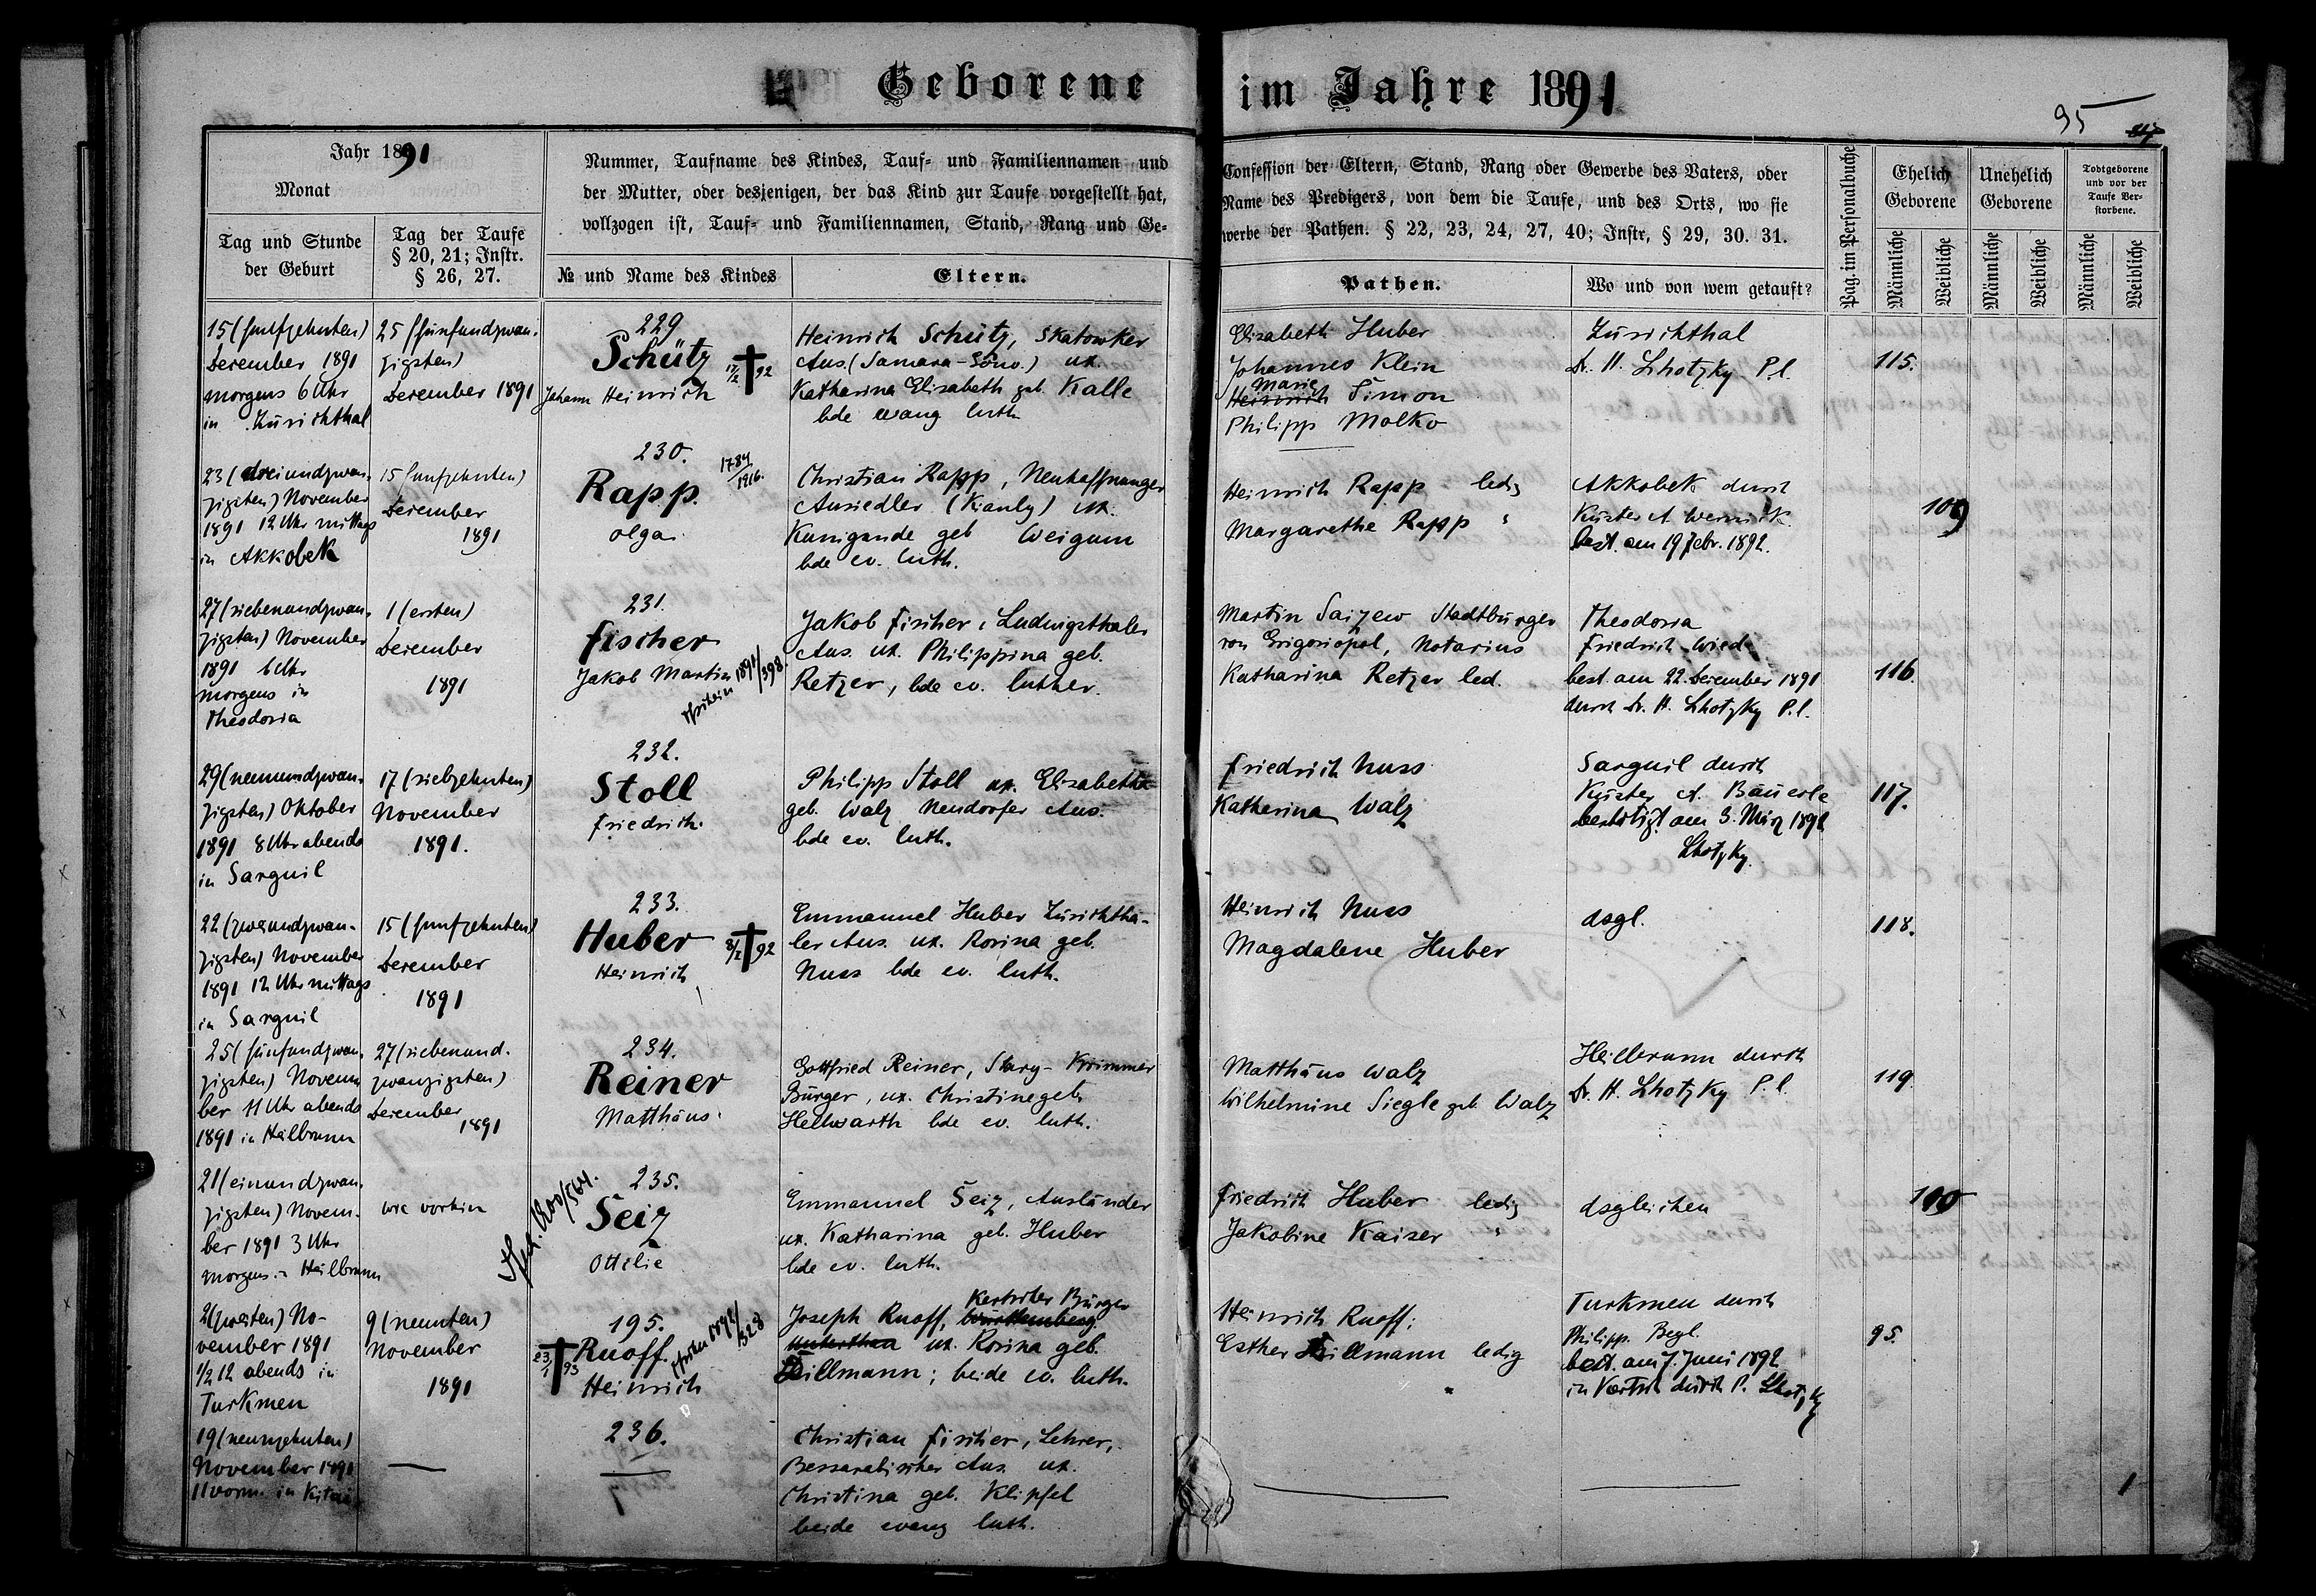 Geborene im Jahre 1891
95
Jahr 1891
Monat
Tag und Stunde
der Geburt
Tag der Taufe
§ 20, 21; Instr.
§ 26, 27.
Nummer, Taufname des Kindes, Tauf- und Familiennamen und
der Mutter, oder desjenigen, der das Kind zur Taufe vorgestellt hat,
vollzogen ist, Tauf- und Familiennamen, Stand, Rang und Ge-
№ und Name des Kindes
Eltern.
Confession der Eltern, Stand, Rang oder Gewerbe des Vaters, oder
Name des Predigers, von dem die Taufe, und des Orts, wo sie
werbe der Pathen. § 22, 23, 24, 27, 40; Instr, § 29, 30. 31.
Pathen.
Wo und von wem getauft?
Pag. im Personalbuche
Ehelich
Geborene
Unehelich
Geborene
Todtgeborene
und vor der
Taufe Ver-
storbene.
Männliche
Weibliche
Männliche
Weibliche
Männliche
Weibliche
15 (fünfzehnten)
December 1891
morgens 6 Uhr
in Zürichthal
25 (fünfundzwan-
zigsten)
December 1891
229
Schütz
17/2 † 92
Johann Heinrich
Heinrich Schütz, Skatowker
Ans. (Samara-Gouv.) ux.
Katharina Elisabeth geb. Kalle
bde evang luth
Elisabeth Huber
Johannes Klein
Marie
Heinrich Simon
Philipp Molko
Zürichthal
Dr. H. Lhotzky P.l.
115.
23 (dreiundzwan-
zigsten) November
1891 12 Uhr mittags
in Akkobek
15 (fünfzehnten)
December
1891
230.
1784/1916.
Rapp.
Olga
Christian Rapp, Neuhoffnunger
Ansiedler (Kianly) ux.
Kunigunde geb Weigum
bde ev. luth.
Heinrich Rapp ledig
Margarethe Rapp "
Akkobek durch
Küster A Wernick
best. am 19 Febr. 1892.
109
27 (siebenundzwan-
zigsten) November
1891 6 Uhr
morgens in
Theodosia
1 (ersten)
December
1891
231.
Fischer
Jakob Martin
1891/398.
Jakob Fischer, Ludwigsthaler
Ans. ux. Philippina geb.
Retzer, bde ev. luther.
Martin Saizew Stadtbürger
von Grigoriopol, Notarius
Katharina Retzer led.
Theodosia
Friedrich Wiede
best. am 22. December 1891
durch Dr. H. Lhotzky P.l.
116.
29 (neunundzwan-
zigsten) Oktober
1891 8 Uhr abends
in Sarguil
17 (siebzehnten)
November
1891.
232.
Stoll
Friedrich.
Philipp Stoll ux. Elisabetha
geb. Walz Neudorfer Ans.
bde ev. luth.
Friedrich Nuss
Katharina Walz
Sarguil durch
Küster A. Bäuerle
bestätigt am 3. März 1892
Lhotzky.
117.
22 (zweiundzwan-
zigsten) November
1891 12 Uhr mittags
in Sarguil
15 (fünfzehnten)
December
1891
233.
Huber
† 92
Heinrich
Emmanuel Huber Zürichtha-
ler Ans. ux. Rosina geb.
Nuss bde ev. luth.
Heinrich Nuss
Magdalene Huber
dsgl.
118.
25 (fünfundzwan-
zigsten) Novem
ber 11 Uhr abends
1891 in Heilbrunn
27 (siebenund-
zwanzigsten)
December
1891
234.
Reiner
Matthäus
Gottfried Reiner, Stary-Krimmer
Bürger, ux. Christine geb.
Hellwarth bde ev. luth.
Matthäus Walz
Wilhelmine Siegle geb. Walz
Heilbrunn durch
Dr. H. Lhotzky P.l.
119
21 (einundzwan-
zigsten) Novem-
ber 1891 3 Uhr
morgens in Heilbrunn
wie vorhin
235.
Seiz
Ottilie
Emmanuel Seiz, Ausländer
ux. Katharina geb. Huber
bde ev. luth.
Friedrich Huber ledig
Jakobine Kaiser "
dsgleichen
110
2 (zweiten) No-
vember 1891
1/2 12 abends in
Turkmen
9 (neunten)
November
1891
195.
23/1 † 93
Ruoff.
Heinrich
1892/328
Kertscher Bürger
Joseph Ruoff, Württemberg.
ux. Rosina geb.
Dillmann; beide ev. luth.
Heinrich Ruoff;
Esther Dillmann ledig
"
Turkmen durch
Philipp Begl.
best. am 7. Juni 1892
in Kertsch durch P. Lhotzky
95.
19 (neunzehnten)
November 1891
11 vorm. in Kitai
—
236.
—
Christian Fischer, Lehrer,
Bessarabischer Ans. ux.
Christina geb. Klipfel
beide evang luth.
—
—
1